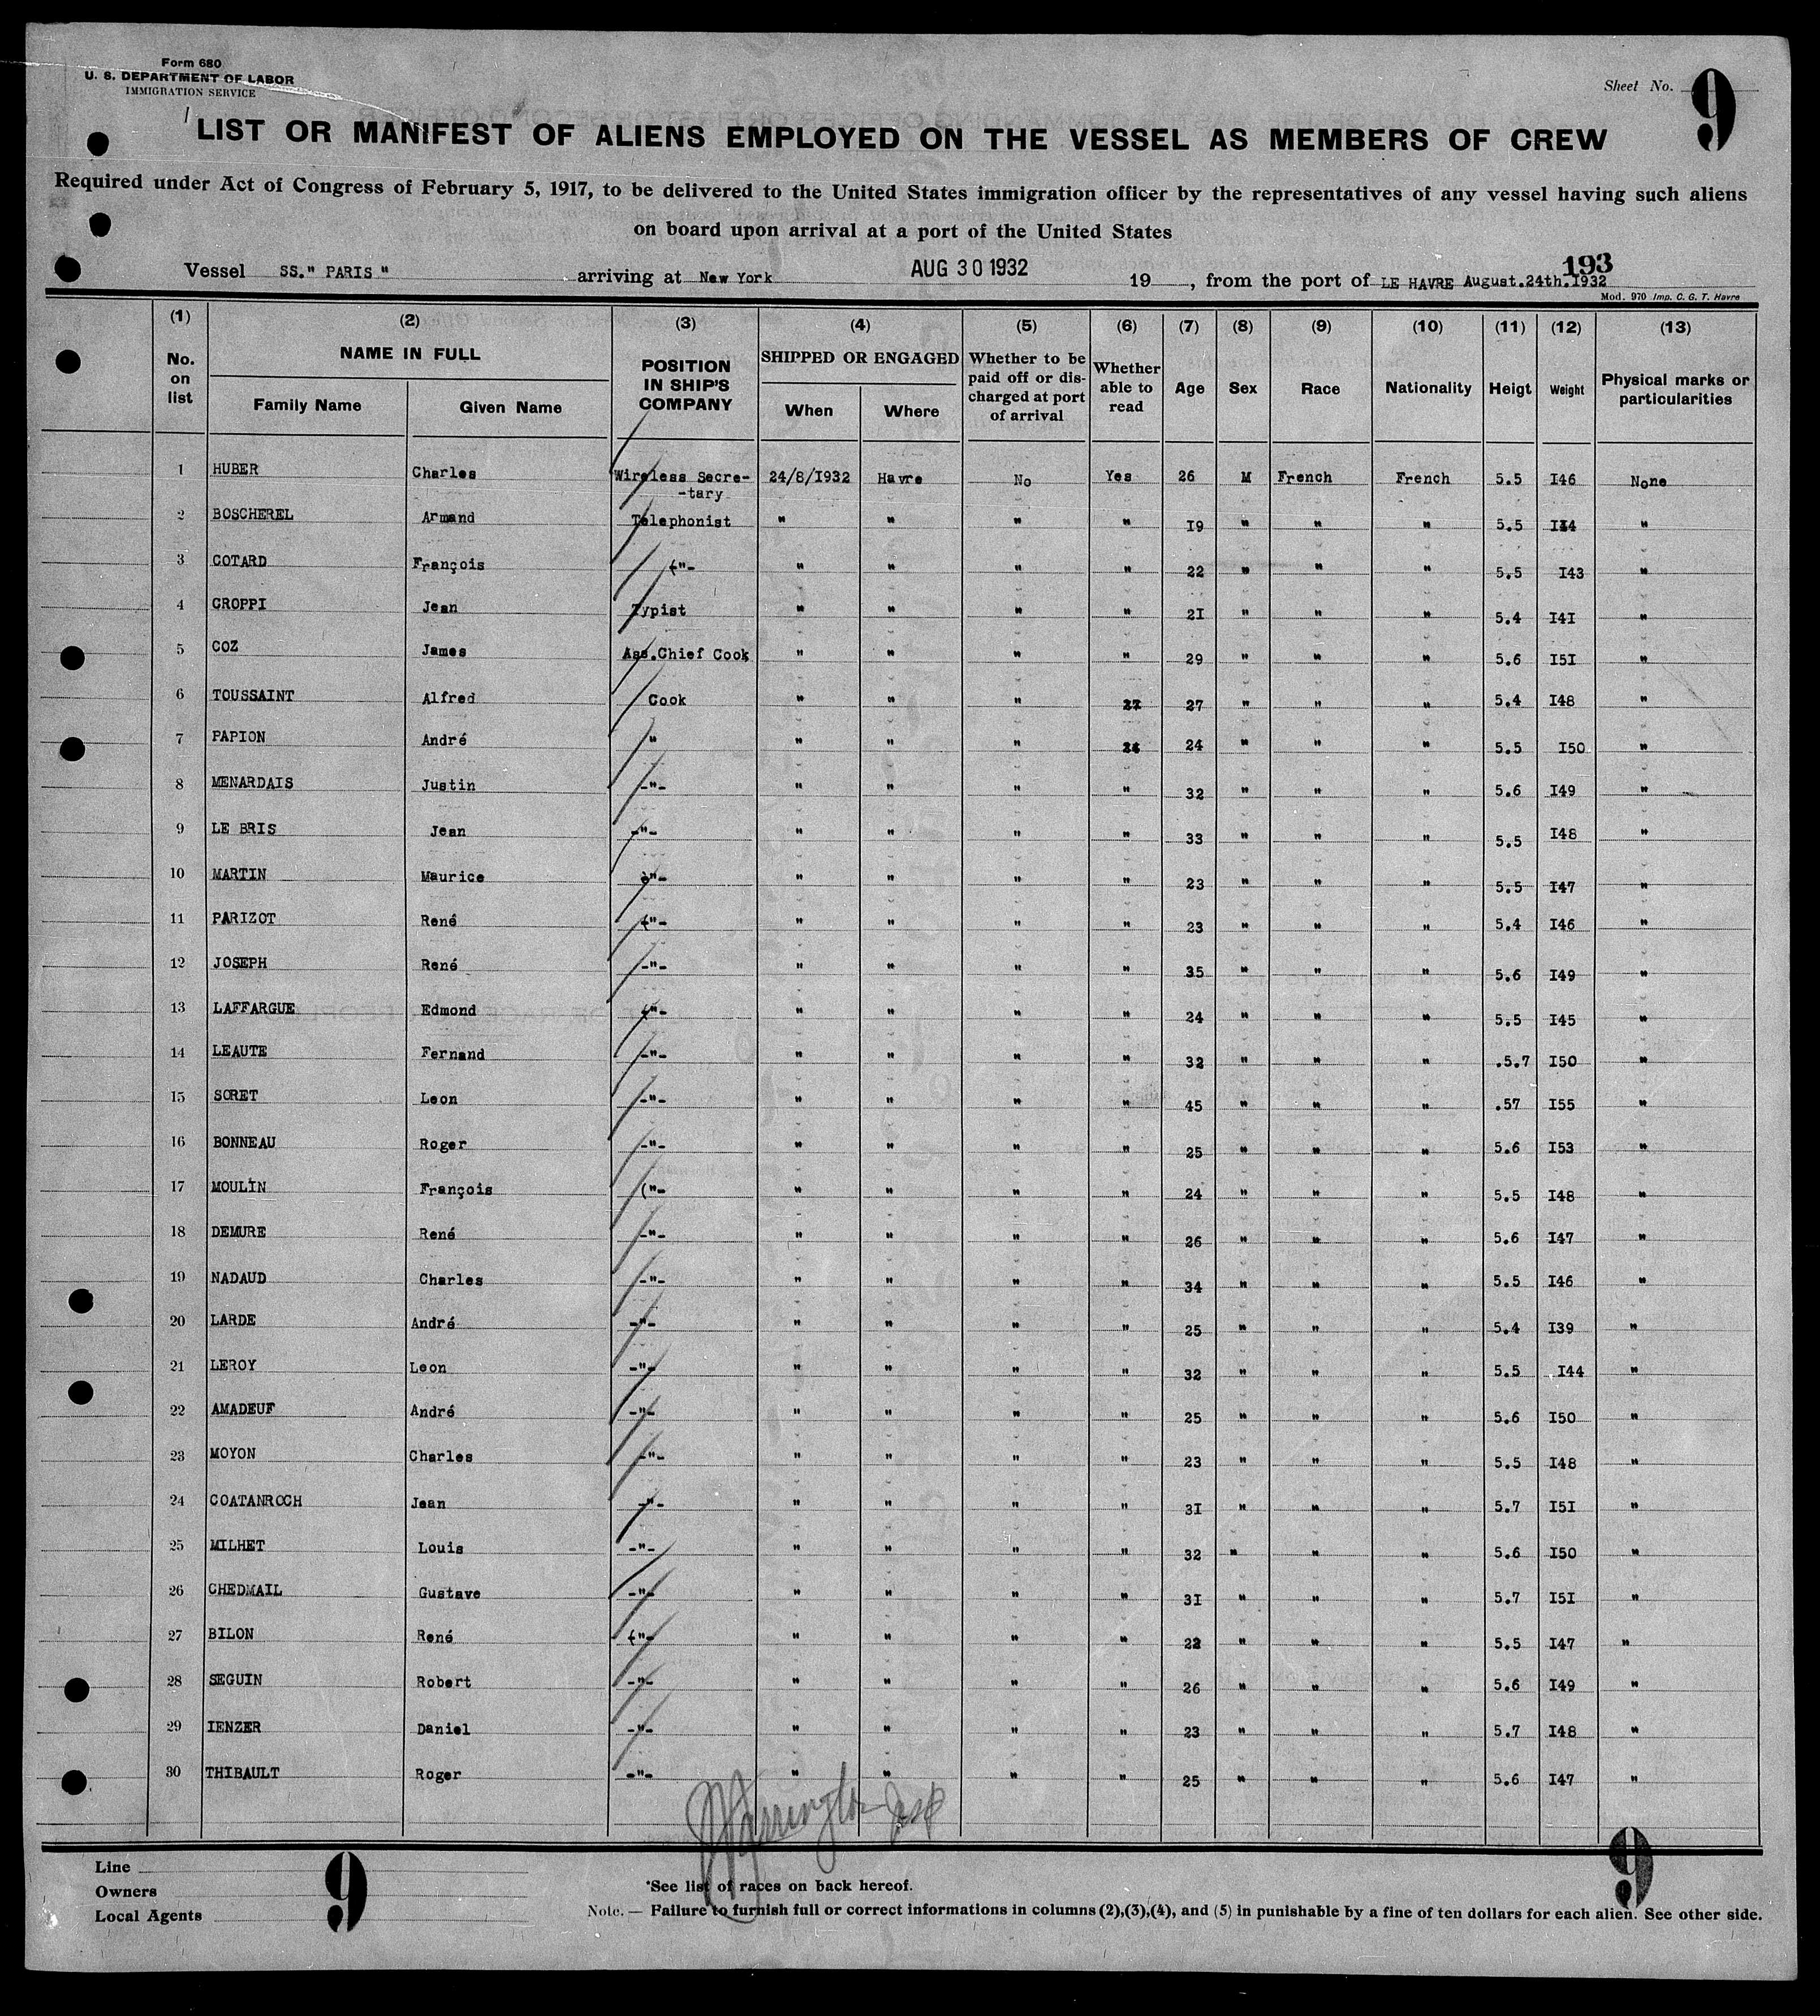 Form 680
U. S. DEPARTMENT OF LABOR
IMMIGRATION SERVICE
Sheet No. 9
LIST OR MANIFEST OF ALIENS EMPLOYED ON THE VESSEL AS MEMBERS OF CREW
Required under Act of Congress of February 5, 1917, to be delivered to the United States immigration officer by the representatives of any vessel having such aliens
on board upon arrival at a port of the United States
193
Vessel SS." PARIS " arriving at New York AUG 30 1932 19 , from the port of LE HAVRE August.24th.1932
Mod. 970 Imp. C. G. T. Havre
(1) (2) (3) (4) (5) (6) (7) (8) (9) (10) (11) (12) (13)
No. on list NAME IN FULL Family Name Given Name POSITION IN SHIP'S COMPANY SHIPPED OR ENGAGED When Where Whether to be paid off or discharged at port of arrival Whether able to read Age Sex Race Nationality Heigt Weight Physical marks or particularities
1 HUBER Charles Wireless Secre--tary 24/8/I932 Havre No Yes 26 M French French 5.5 I46 None
2 BOSCHEREL Armand Telephonist " " " " I9 " " " 5.5 I44 "
3 COTARD François -"- " " " " 22 " " " 5.5 I43 "
4 CROPPI Jean Typist " " " " 2I " " " 5.4 I4I "
5 COZ James Ass.Chief Cook " " " " 29 " " " 5.6 I5I "
6 TOUSSAINT Alfred Cook " " " 27 27 " " " 5.4 I48 "
7 PAPION André " " " " 24 24 " " " 5.5 I50 "
8 MENARDAIS Justin -"- " " " " 32 " " " 5.6 I49 "
9 LE BRIS Jean -"- " " " " 33 " " " 5.5 I48 "
10 MARTIN Maurice è"- " " " " 23 " " " 5.5 I47 "
11 PARIZOT René ("- " " " " 23 " " " 5.4 I46 "
12 JOSEPH René -"- " " " " 35 " " " 5.6 I49 "
13 LAFFARGUE Edmond ("- " " " " 24 " " " 5.5 I45 "
14 LEAUTE Fernand -"- " " " " 32 " " " .5.7 I50 "
15 SORET Leon -"- " " " " 45 " " " .57 I55 "
16 BONNEAU Roger -"- " " " " 25 " " " 5.6 I53 "
17 MOULIN François ("- " " " " 24 " " " 5.5 I48 "
18 DEMURE René -"- " " " " 26 " " " 5.6 I47 "
19 NADAUD Charles -"- " " " " 34 " " " 5.5 I46 "
20 LARDE André -"- " " " " 25 " " " 5.4 I39 "
21 LEROY Leon -"- " " " " 32 " " " 5.5 I44 "
22 AMADEUF André -"- " " " " 25 " " " 5.6 I50 "
23 MOYON Charles -"- " " " " 23 " " " 5.5 I48 "
24 COATANROCH Jean -"- " " " " 3I " " " 5.7 I5I "
25 MILHET Louis -"- " " " " 32 " " " 5.6 I50 "
26 CHEDMAIL Gustave -"- " " " " 3I " " " 5.7 I5I "
27 BILON René ("- " " " " 22 " " " 5.5 I47 "
28 SEGUIN Robert -"- " " " " 26 " " " 5.6 I49 "
29 IENZER Daniel -"- " " " " 23 " " " 5.7 I48 "
30 THIBAULT Roger -"- " " " " 25 " " " 5.6 I47 "
Line
Owners
Local Agents
9
9
*See list of races on back hereof.
Note. — Failure to furnish full or correct informations in columns (2),(3),(4), and (5) in punishable by a fine of ten dollars for each alien. See other side.